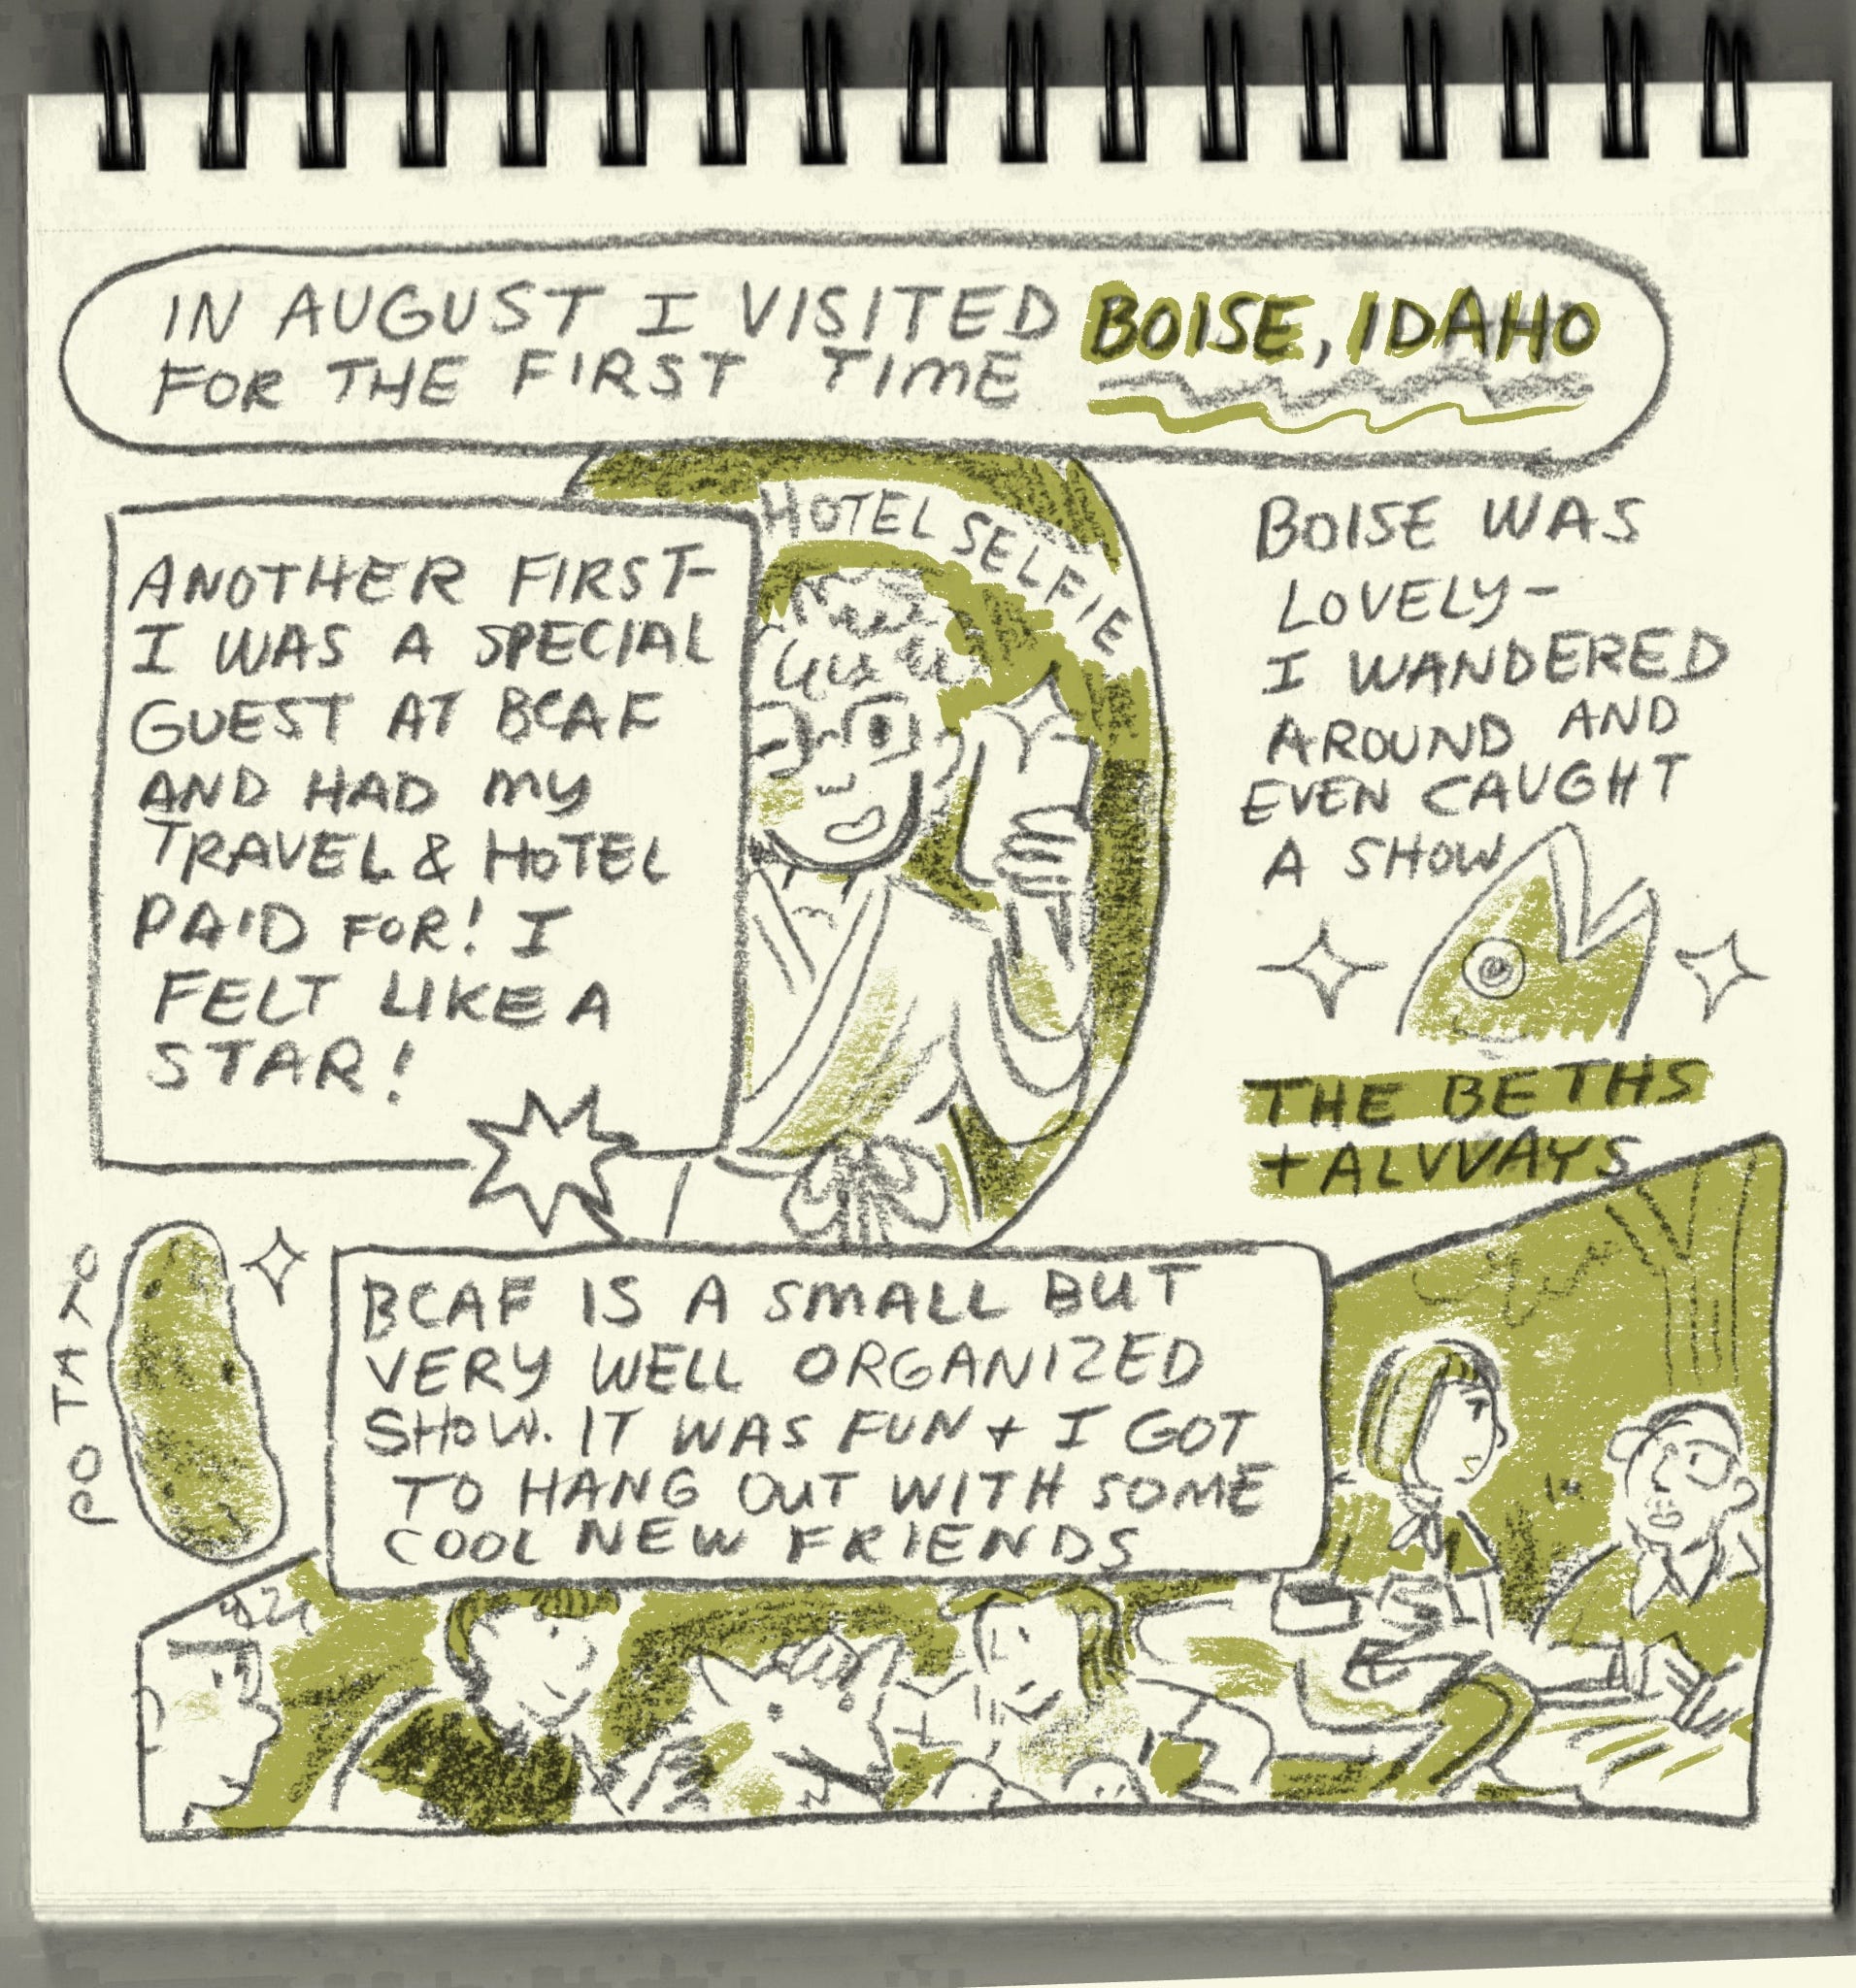 IN AUGUST I VISITED BOISE, IDAHO
FOR THE FIRST TIME
ANOTHER FIRST-
I WAS A SPECIAL
GUEST AT BCAF
AND HAD MY
TRAVEL & HOTEL
PAID FOR! I
FELT LIKE A
STAR!
HOTEL SELFIE
BOISE WAS
LOVELY-
I WANDERED
AROUND AND
EVEN CAUGHT
A SHOW
THE BETHS
+ ALVVAYS
POTATO
BCAF IS A SMALL BUT
VERY WELL ORGANIZED
SHOW. IT WAS FUN + I GOT
TO HANG OUT WITH SOME
COOL NEW FRIENDS